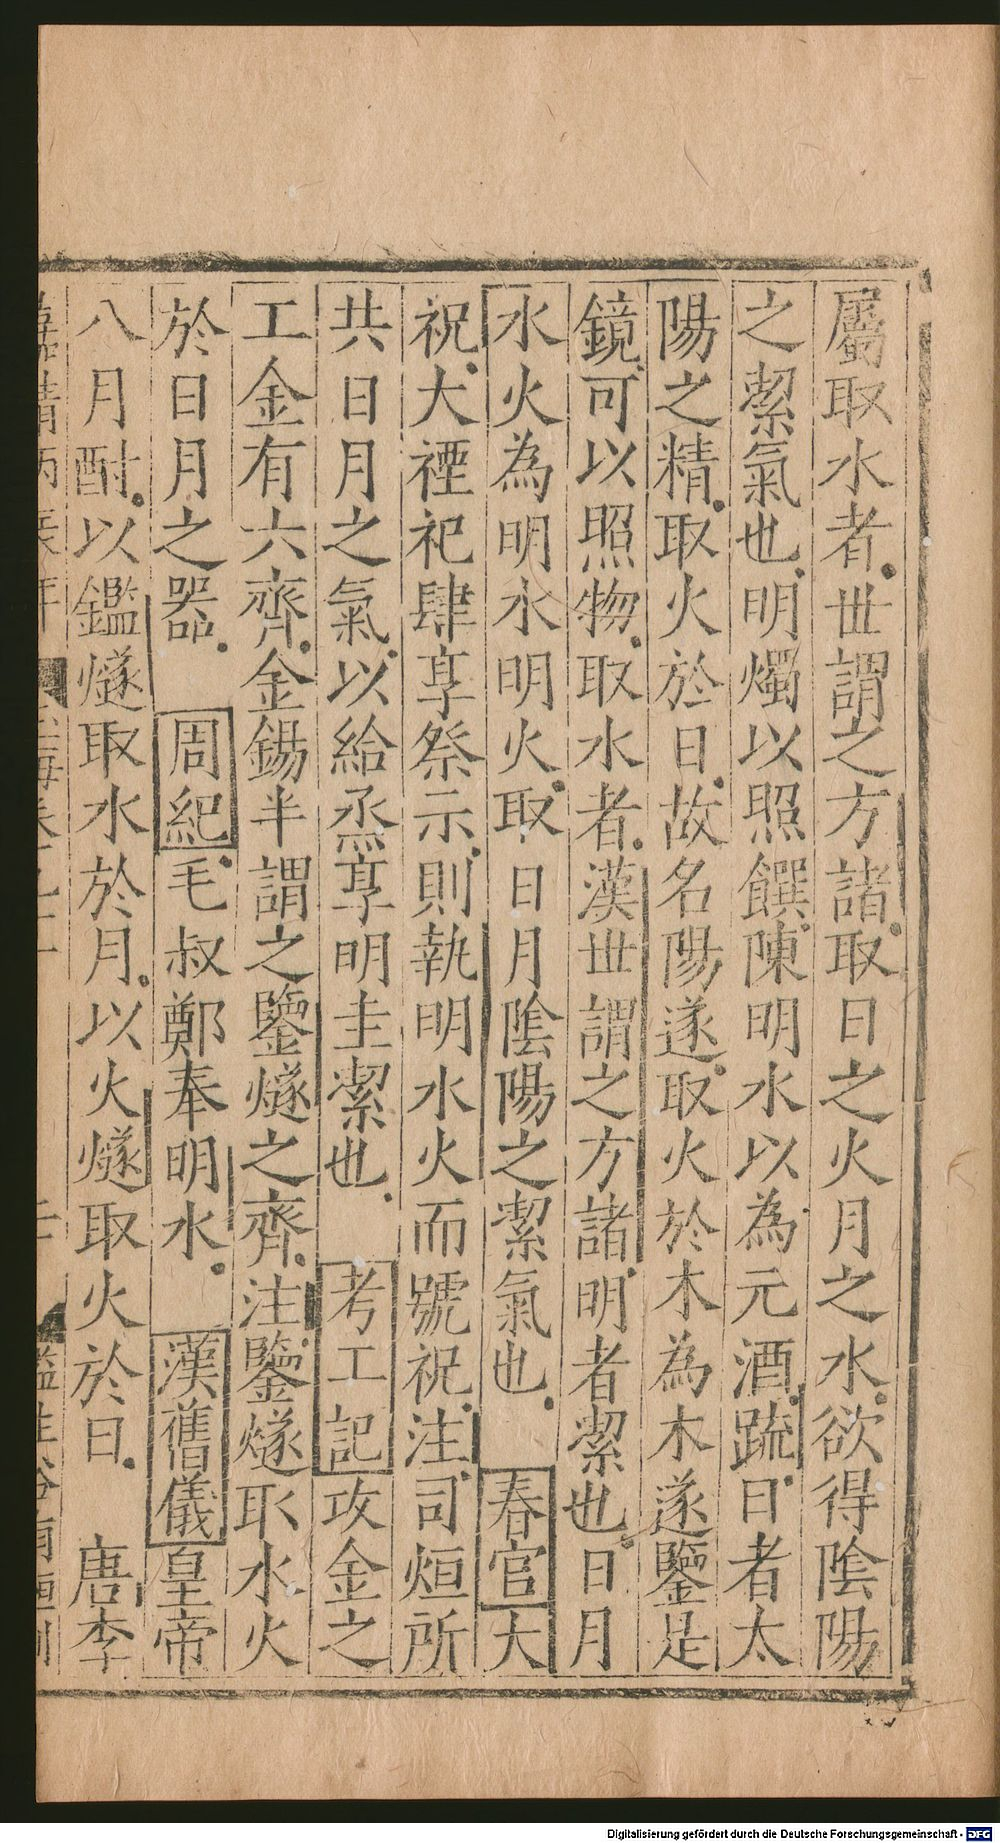 屬取水者世謂之方諸取日之火月之水欲得陰陽
之絜氣也明燭以照饌陳明水以為元酒䟽曰者太
陽之精取火於日故名陽遂取火於木為木遂鑒是
鏡可以照物取水者漢世謂之方諸明者絜也日月
水火為明水明火取日月陰陽之絜氣也 春官大
祝大禋祀肆享祭示則執明水火而號祝注司烜所
共日月之氣以給烝享明圭潔也 考工記攻金之
工金有六齊金錫半謂之鑒燧之齊注鑒燧取水火
於日月之器 周紀毛叔鄭奉明水 漢舊儀皇帝
八月酎以鑑燧取水於月以火燧取火於日 唐李
Digitalisierung gefördert durch die Deutsche Forschungsgemeinschaft - DFG